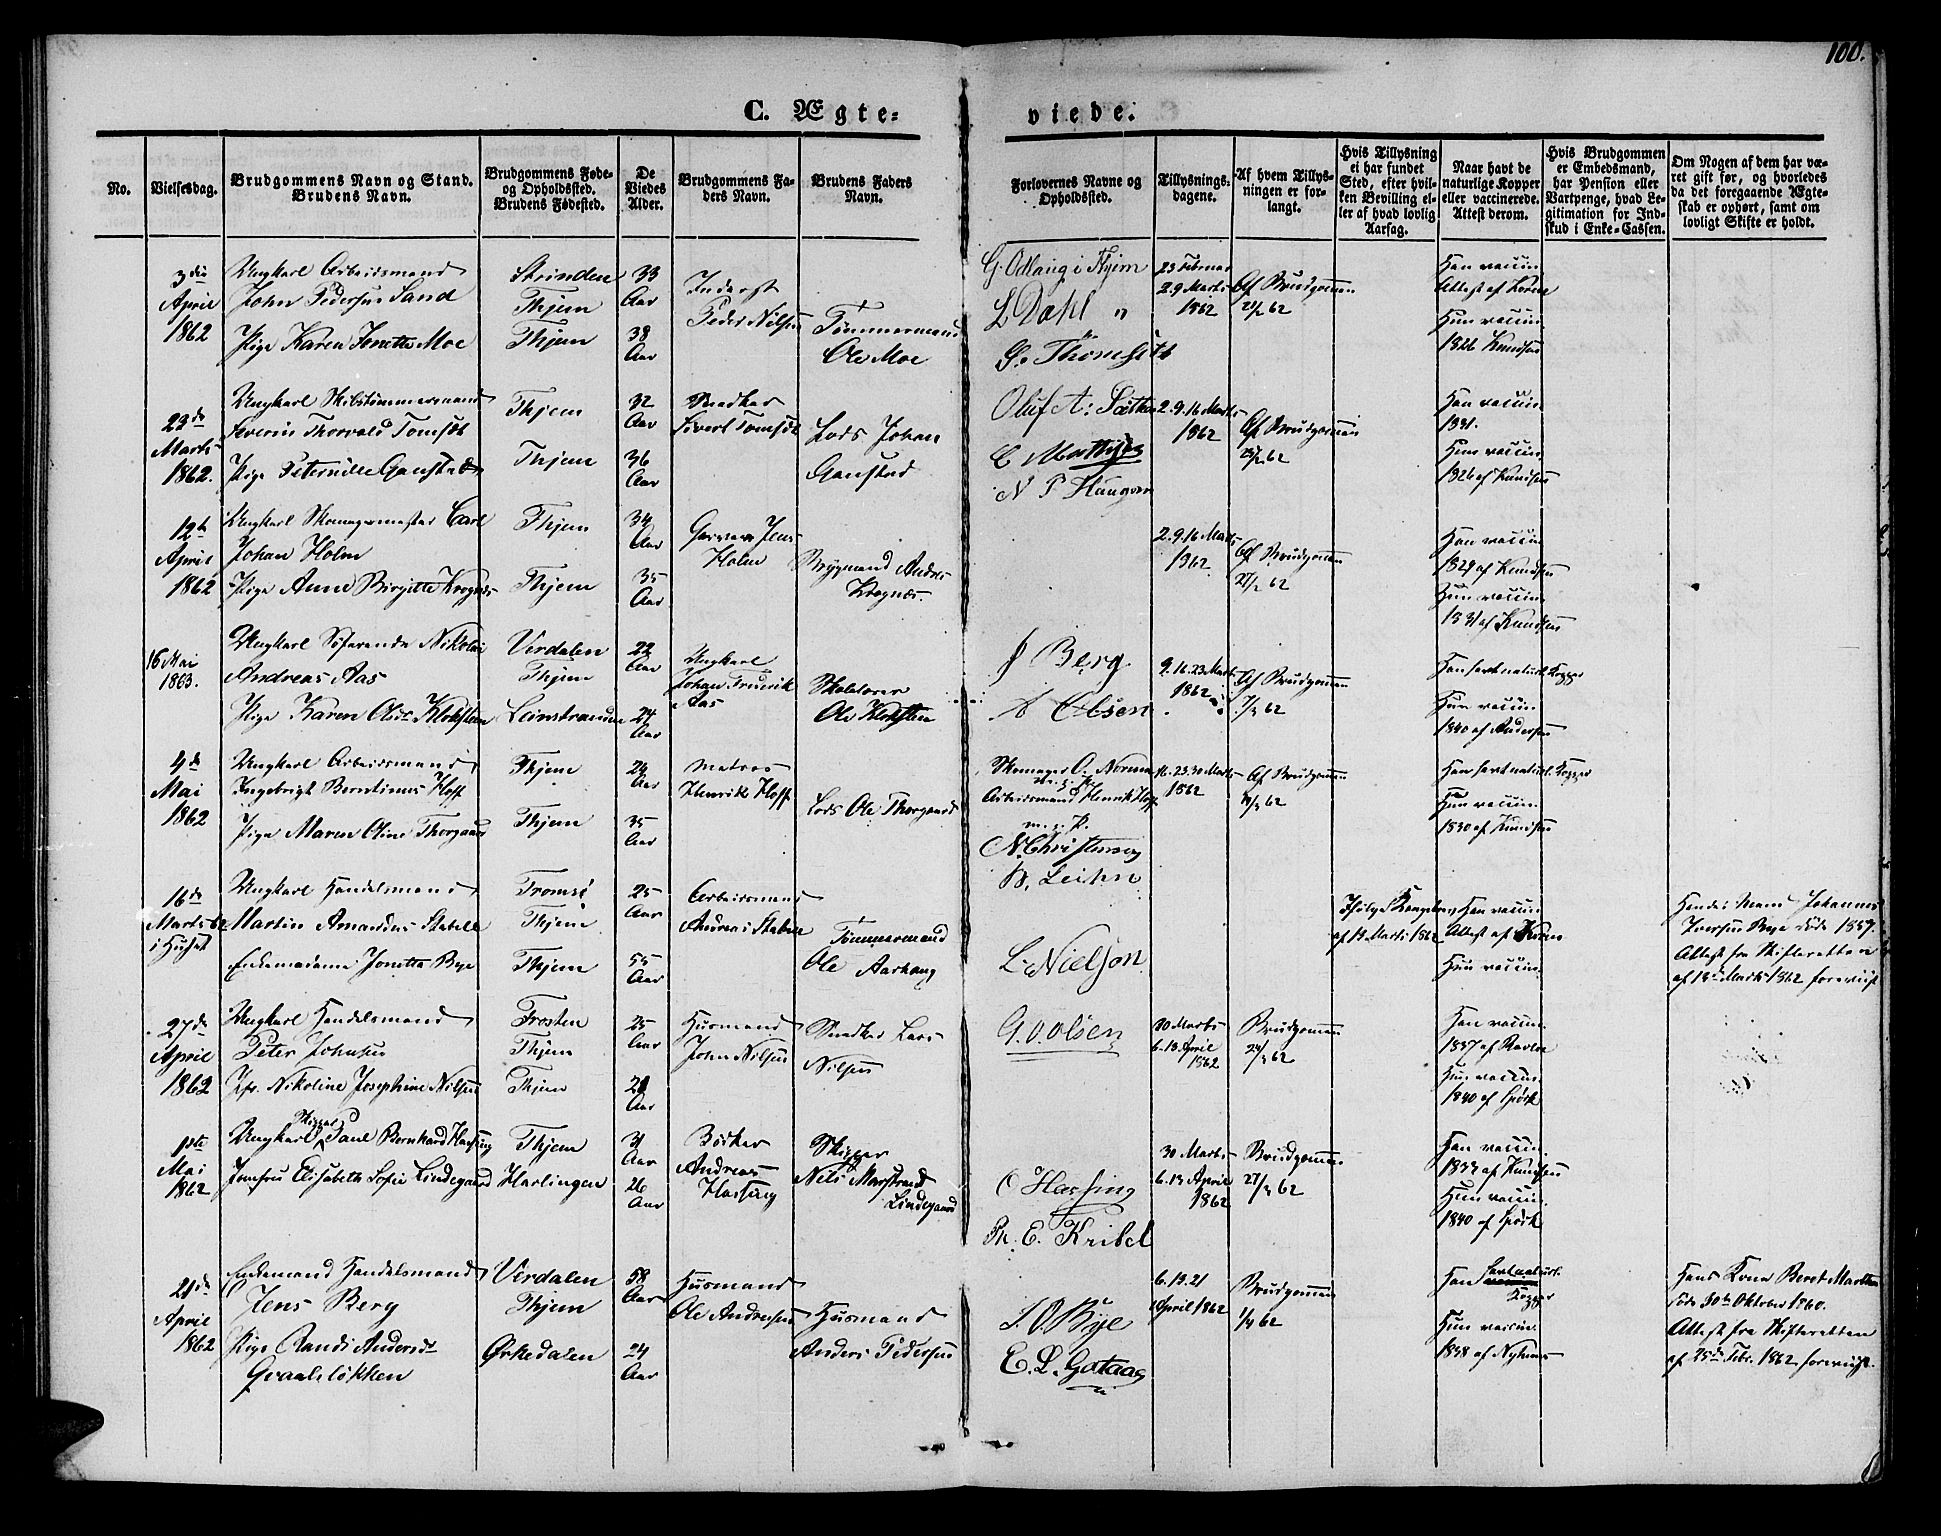 100.
C. Ægte-
viede.
No.
Vielsesdag.
Brudgommens Navn og Stand.
Brudens Navn.
Brudgommens Føde-
og Opholdssted.
Brudens Fødested.
De
Viedes
Alder.
Brudgommens Fa-
ders Navn.
Brudens Faders
Navn.
Forlovernes Navne og
Opholdssted.
Tillysnings-
dagene.
Af hvem Tillys-
ningen er for-
langt.
Hvis Tillysning
ei har fundet
Sted, efter hvil-
ken Bevilling el-
ler af hvad lovlig
Aarsag.
Naar havt de
naturlige Kopper
eller vaccinerede.
Attest derom.
Hvis Brudgommen
er Embedsmand,
har Pension eller
Vartpenge, hvad Le-
gitimation for Ind-
skud i Enke-Cassen.
Om Nogen af dem har væ-
ret gift før, og hvorledes
da det foregaaende Ægte-
skab er ophørt, samt om
lovligt Skifte er holdt.
3die
April
1862
Ungkarl Arbeidsmand
John Pedersen Sand
Pige Karen Jonette Moe
Strinden
Thjem
Thjem
33
Aar
38
Aar
Inderst
Peder Nilsen
Tømmermand
Ole Moe
G. Odlaug i Thjem
L Dahl "
23 Februar
2.9 Marts
1862
Af Brudgommen
21/2 62
Han vaccin.
Hun vaccin.
1826 Knudsen
23de
Marts
1862.
Ungkarl Skibstømmermand
Severin Thorvald Tomsøt
Pige Peternille Ganstad
Thjem
Thjem
32
Aar
36
Aar
Snedker
Sivert Tomsøt
Lods Johan
Ganstad
2.9.16 Marts
1862
Af Brudgommen
Han vaccin.
1831.
Hun vaccin.
1826 af Knudsen
12te
April
1862
Ungkarl Skomagermester Carl
Johan Holm
Pige Anne Birgitte Krognæs
Thjem
Thjem
34
Aar
35
Aar
Garver Jens
Holm
Bygmand Andres
Krognæs.
2.9.16 Marts
1862
Af Brudgommen
27/2 62
Han vaccin.
1829 af Knudsen
Hun vaccin.
1831 af Knudsen
16 Mai
1863.
Ungkarl Søfarende Nikolai
Andreas Aas
Pige Karen Olise Klokstein
Verdalen
Thjem
Leinstranden
22
Aar
24
Aar
Ungkarl
Johan Fredrik
Aas
Skolelærer
Ole Klokstein
J Berg
A Olsen
9.16.23 Marts
1862
Af Brudgommen
7/3 62
Han havt naturl. Kopper
Hun vaccin.
1840 af Andersen
4de
Mai
1862
Ungkarl Arbeidsmand
Ingebrigt Berntinus Hoff
Pige Maren Oline Thorgaard
Thjem
Thjem
24
Aar
35
Aar
Matros
Henrik Hoff
Lods Ole Thorgaard
Arbeidsmand Henrik Hoff
m. p. P.
N. Christensen
16.23.30 Marts
1862
Af Brudgommen
Han havt naturl. Kopper
Hun vaccin.
1830 af Knudsen
16de
Marts 62
i Huset
Ungkarl Handelsmand
Martin Amandus Stabell
Enkemadame Jonette Bye
Tromsø
Thjem
Thjem
25
Aar
55
Aar
Arbeidsmand
Andreas Stabell
Tømmermand
Ole Aarhaug
L. Nielson
Ifølge Kongebrev
af 13 Marts 1862
Han vaccin.
Hun vaccin.
Hendes Mand Johannes
Iversen Bye døde 1857.
Attest fra Skifteretten
af 13de Marts 1862 foreviist
27de
April
1862
Ungkarl Handelsmand
Peter Johnsen
Jfr. Nikoline Josephine Nilsen
Frosten
Thjem
Thjem
25
Aar
21
Aar
Husmand
John Nilsen
Snedker Lars
Nilsen
G. O. Olsen
30 Marts
6.13. April
1862
Brudgommen
24/3 62
Han vaccin.
Hun vaccin.
1840 af Spörk
1ste
Mai
1862
Ungkarl Skipper Paul Bernhard Hassing
Jomfru Elisabeth Sofie Lindegaard
Thjem
Harlingen
31
Aar
26
Aar
Bødker
Andreas
Hassing
Skipper
Nils Marstrand
Lindegaard
O Hassing
Fr. E. Kribel
30 Marts
6.13 April
1862
Brudgommen
27/3 62
Han vaccin.
1833 af Knudsen
Hun vaccin.
1840 af Spörk
21de
April
1862
Enkemand Handelsmand
Jens Berg
Pige Randi Andersdr
Graaløkken
Verdalen
Thjem
Ørkedalen
58
Aar
24
Aar
Husmand
Ole Andersen
Husmand
Anders Pedersen
J. O. Bye
E. L. Gataas
6.13.21
April 1862
Brudgommen
1/4 62
Han havt naturl.
Kopper
Hun vaccin.
Hans Kone Beret Martha
døde 30te Oktober 1860.
Attest fra Skifteretten
af 25de Febr. 1862 foreviist.